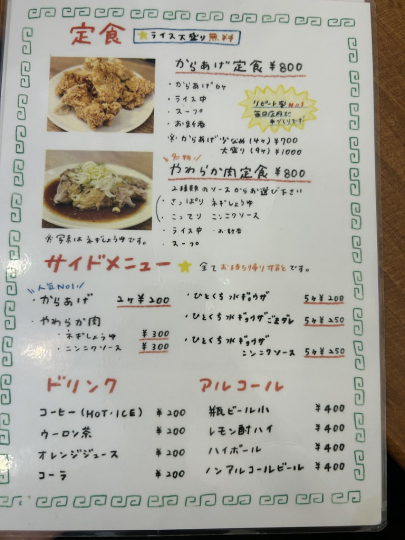 定食 ★ライス大盛り無料
からあげ定食 ¥800
・からあげ6ケ
・ライス中
・スープ
・お新香
リピート率No.1
毎日店内で
手づくりです!
※からあげ少なめ(4ケ)¥700
大盛り(9ケ)¥1000
名物
やわらか肉定食 ¥800
2種類のソースからお選び下さい
さっぱり ネギしょうゆ
こってり ニンニクソース
・ライス中 ・お新香
・スープ
※写真はネギしょうゆです。
サイドメニュー ★ 全てお持ち帰り可能です。
人気No.1
・からあげ 2ケ ¥200
・やわらか肉
・ネギしょうゆ ¥300
・ニンニクソース ¥300
・ひとくち水ギョウザ 5ケ ¥200
・ひとくち水ギョウザ ごまダレ 5ケ ¥250
・ひとくち水ギョウザ
ニンニクソース 5ケ ¥250
ドリンク
コーヒー(HOT・ICE) ¥200
ウーロン茶 ¥200
オレンジジュース ¥200
コーラ ¥200
アルコール
瓶ビール小 ¥400
レモン酎ハイ ¥400
ハイボール ¥400
ノンアルコールビール ¥400